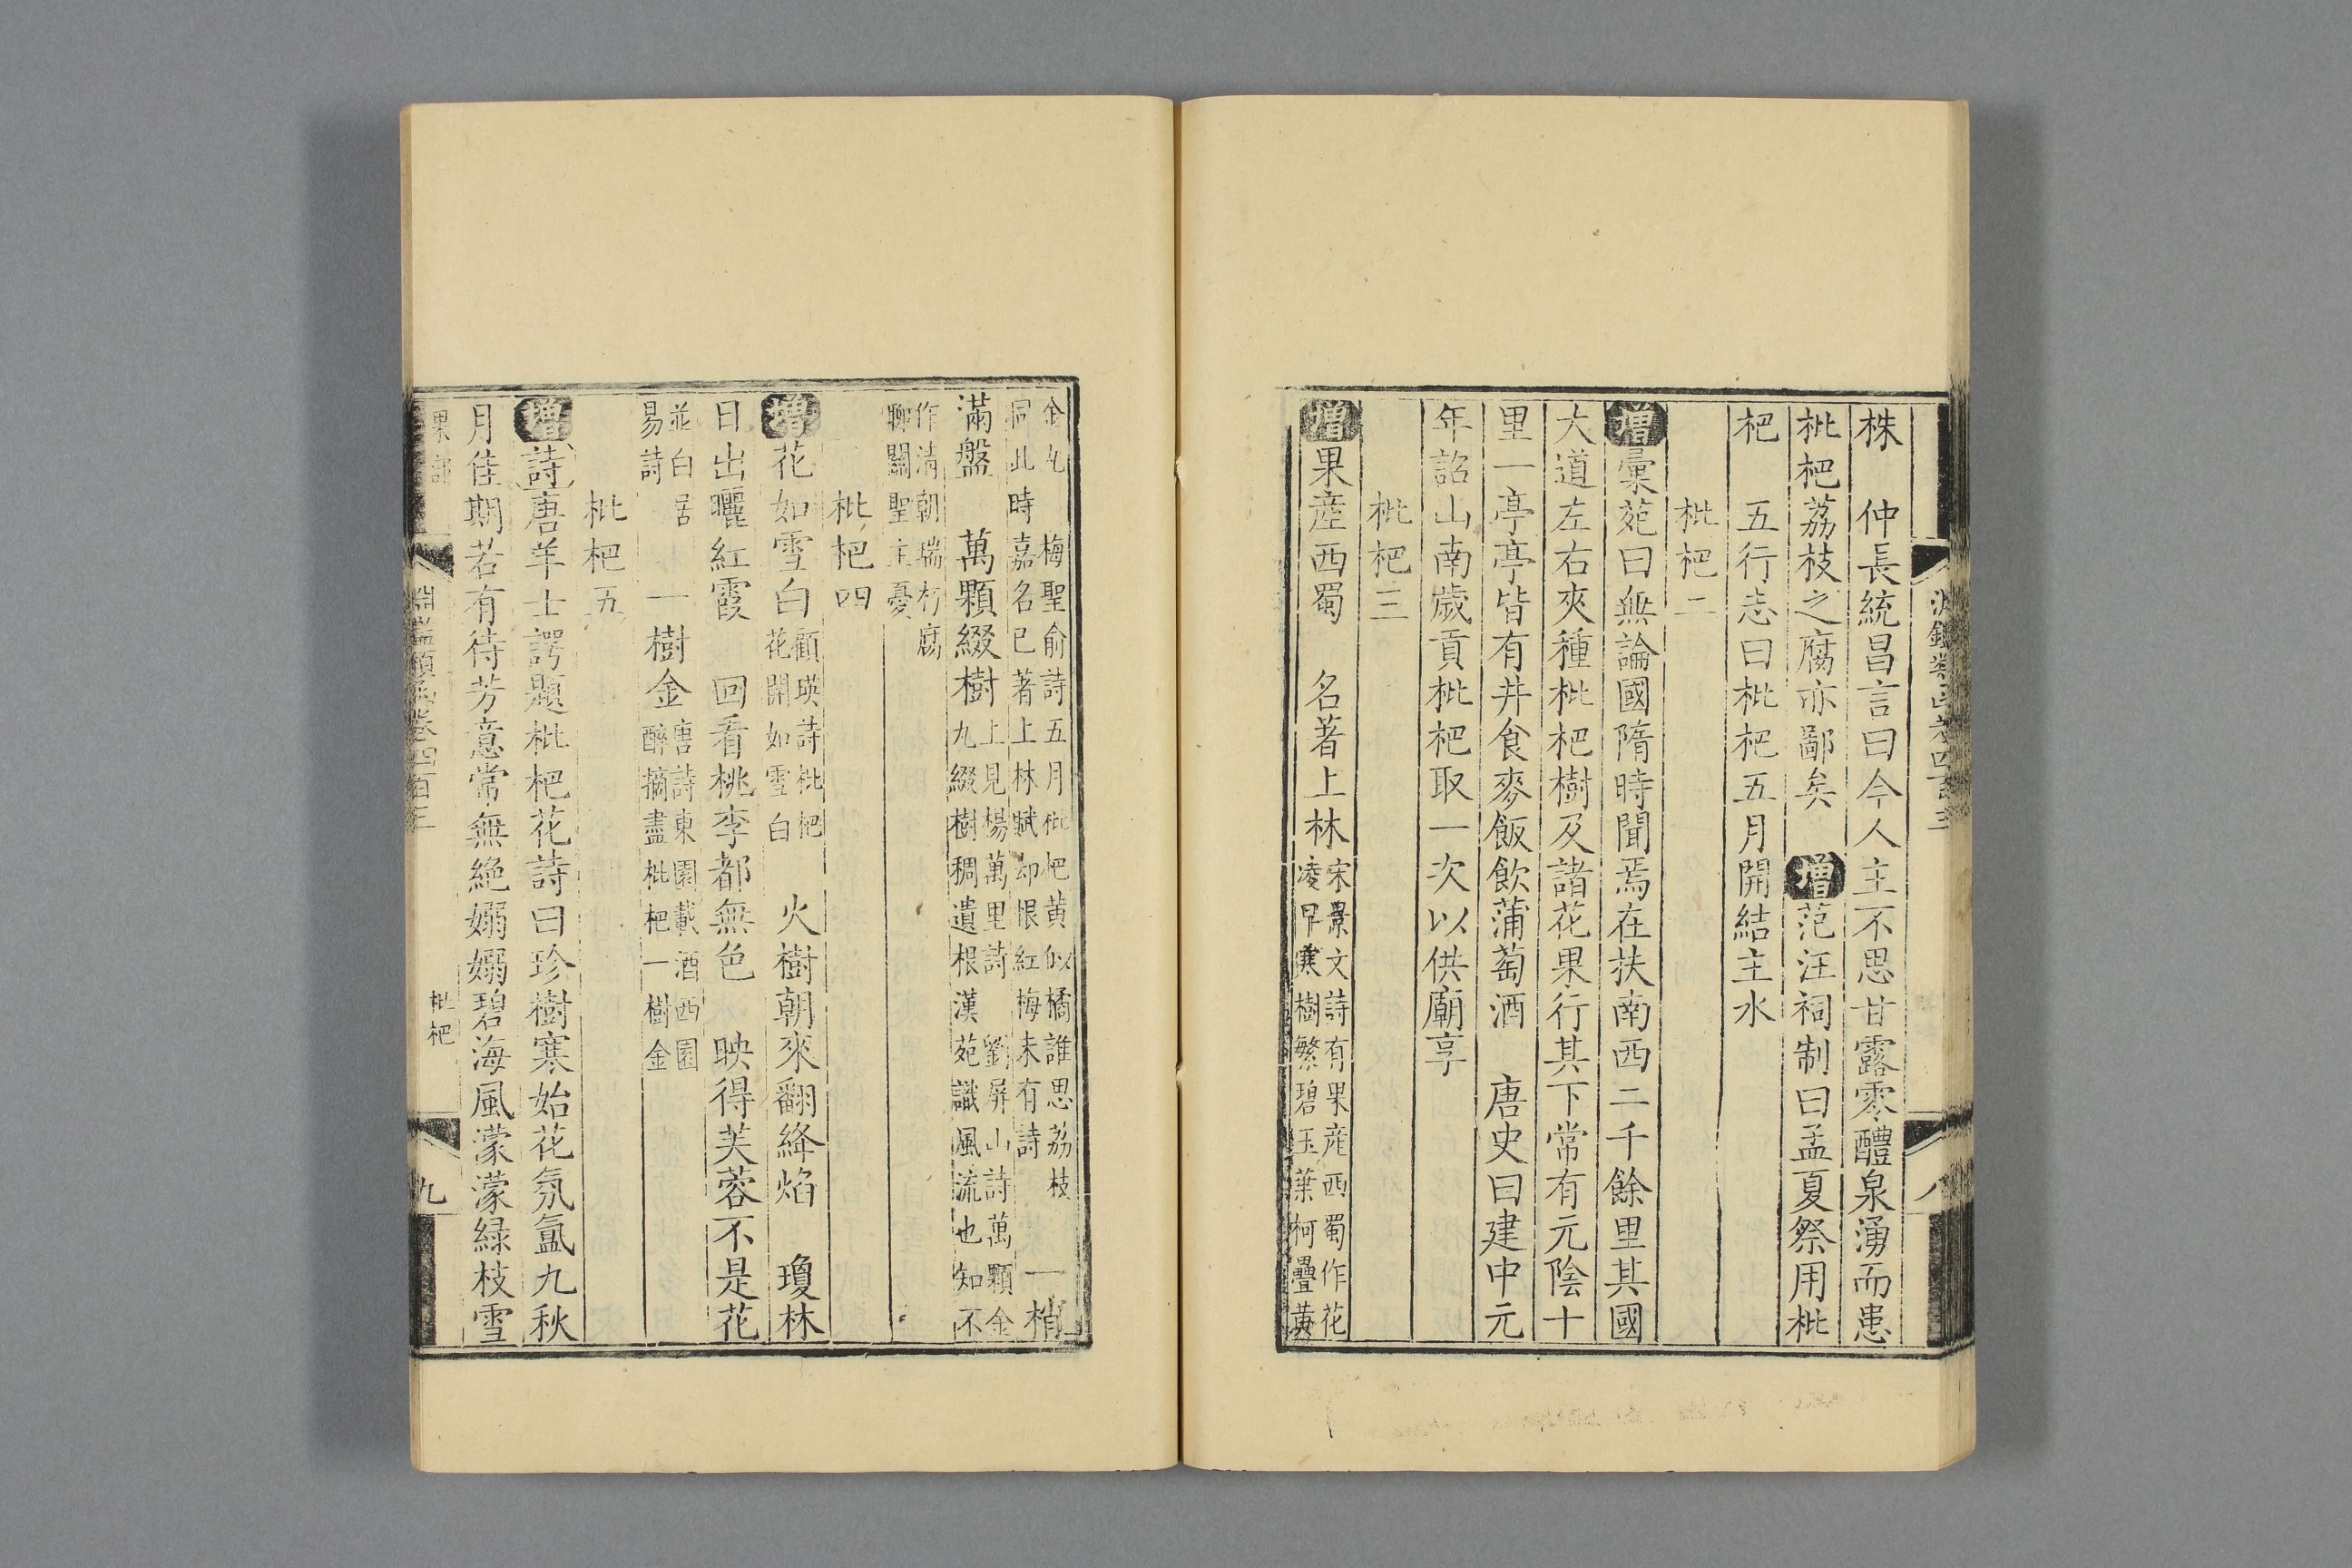 淵鑑類函卷四百三
八
株　仲長統昌言曰今人主不思甘露零醴泉湧而患
枇杷荔枝之腐亦鄙矣　增范汪祠制曰孟夏祭用枇
杷　五行志曰枇杷五月開結主水
枇杷二
增彚苑曰無論國隋時聞焉在扶南西二千餘里其國
大道左右夾種枇杷樹及諸花果行其下常有元陰十
里一亭亭皆有井食麥飯飲蒲萄酒　唐史曰建中元
年詔山南歲貢枇杷取一次以供廟享
枇杷三
增果産西蜀　名著上林
宋景文詩有果産西蜀作花
凌早寒樹繁碧玉葉柯疊黄
金丸　梅聖俞詩五月枇杷黄似橘誰思荔枝
同此時嘉名已著上林賦却恨紅梅未有詩
一梢
滿盤　萬顆綴樹
上見楊萬里詩　劉屏山詩萬顆金
丸綴樹稠遺根漢苑識風流也知不
作清朝瑞朽腐
聊關聖主憂
枇杷四
增花如雪白
顧瑛詩枇杷
花開如雪白
火樹朝來翻絳焰　瓊林
日出曬紅霞　回看桃李都無色　映得芙蓉不是花
並白居
易詩
一樹金
唐詩東園載酒西園
醉摘盡枇杷一樹金
枇杷五
增詩唐羊士諤題枇杷花詩曰珍樹寒始花氛氲九秋
月佳期若有待芳意常無絶嫋嫋碧海風濛濛緑枝雪
果部
淵鑑類函卷四百三
枇杷
九